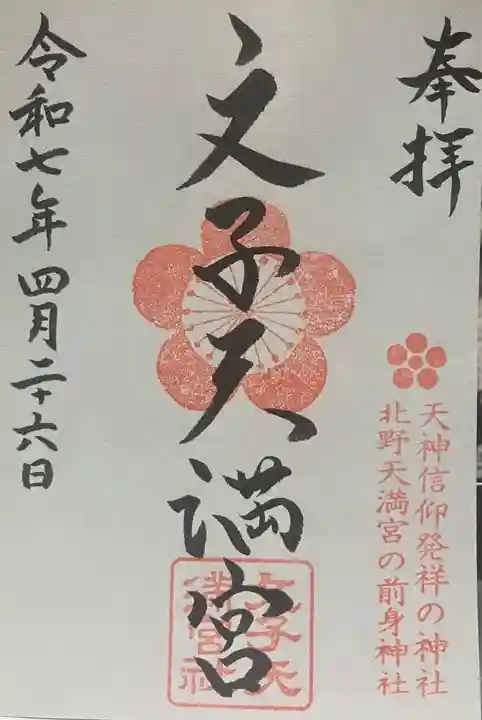 奉拝
天神信仰発祥の神社
北野天満宮の前身神社
文子天満宮
文子天
満宮社
令和七年四月二十六日